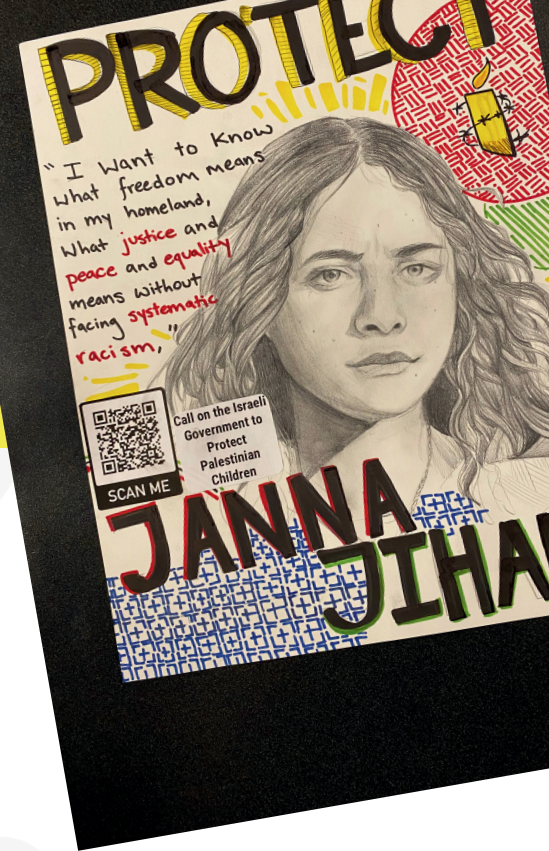 PROTECT
"I Want to Know
what freedom means
in my homeland,
What justice and
peace and equality
means without
facing systematic
racism,"
Call on the Israeli
Government to
Protect
Palestinian
Children
SCAN ME
JANNA
JIHA